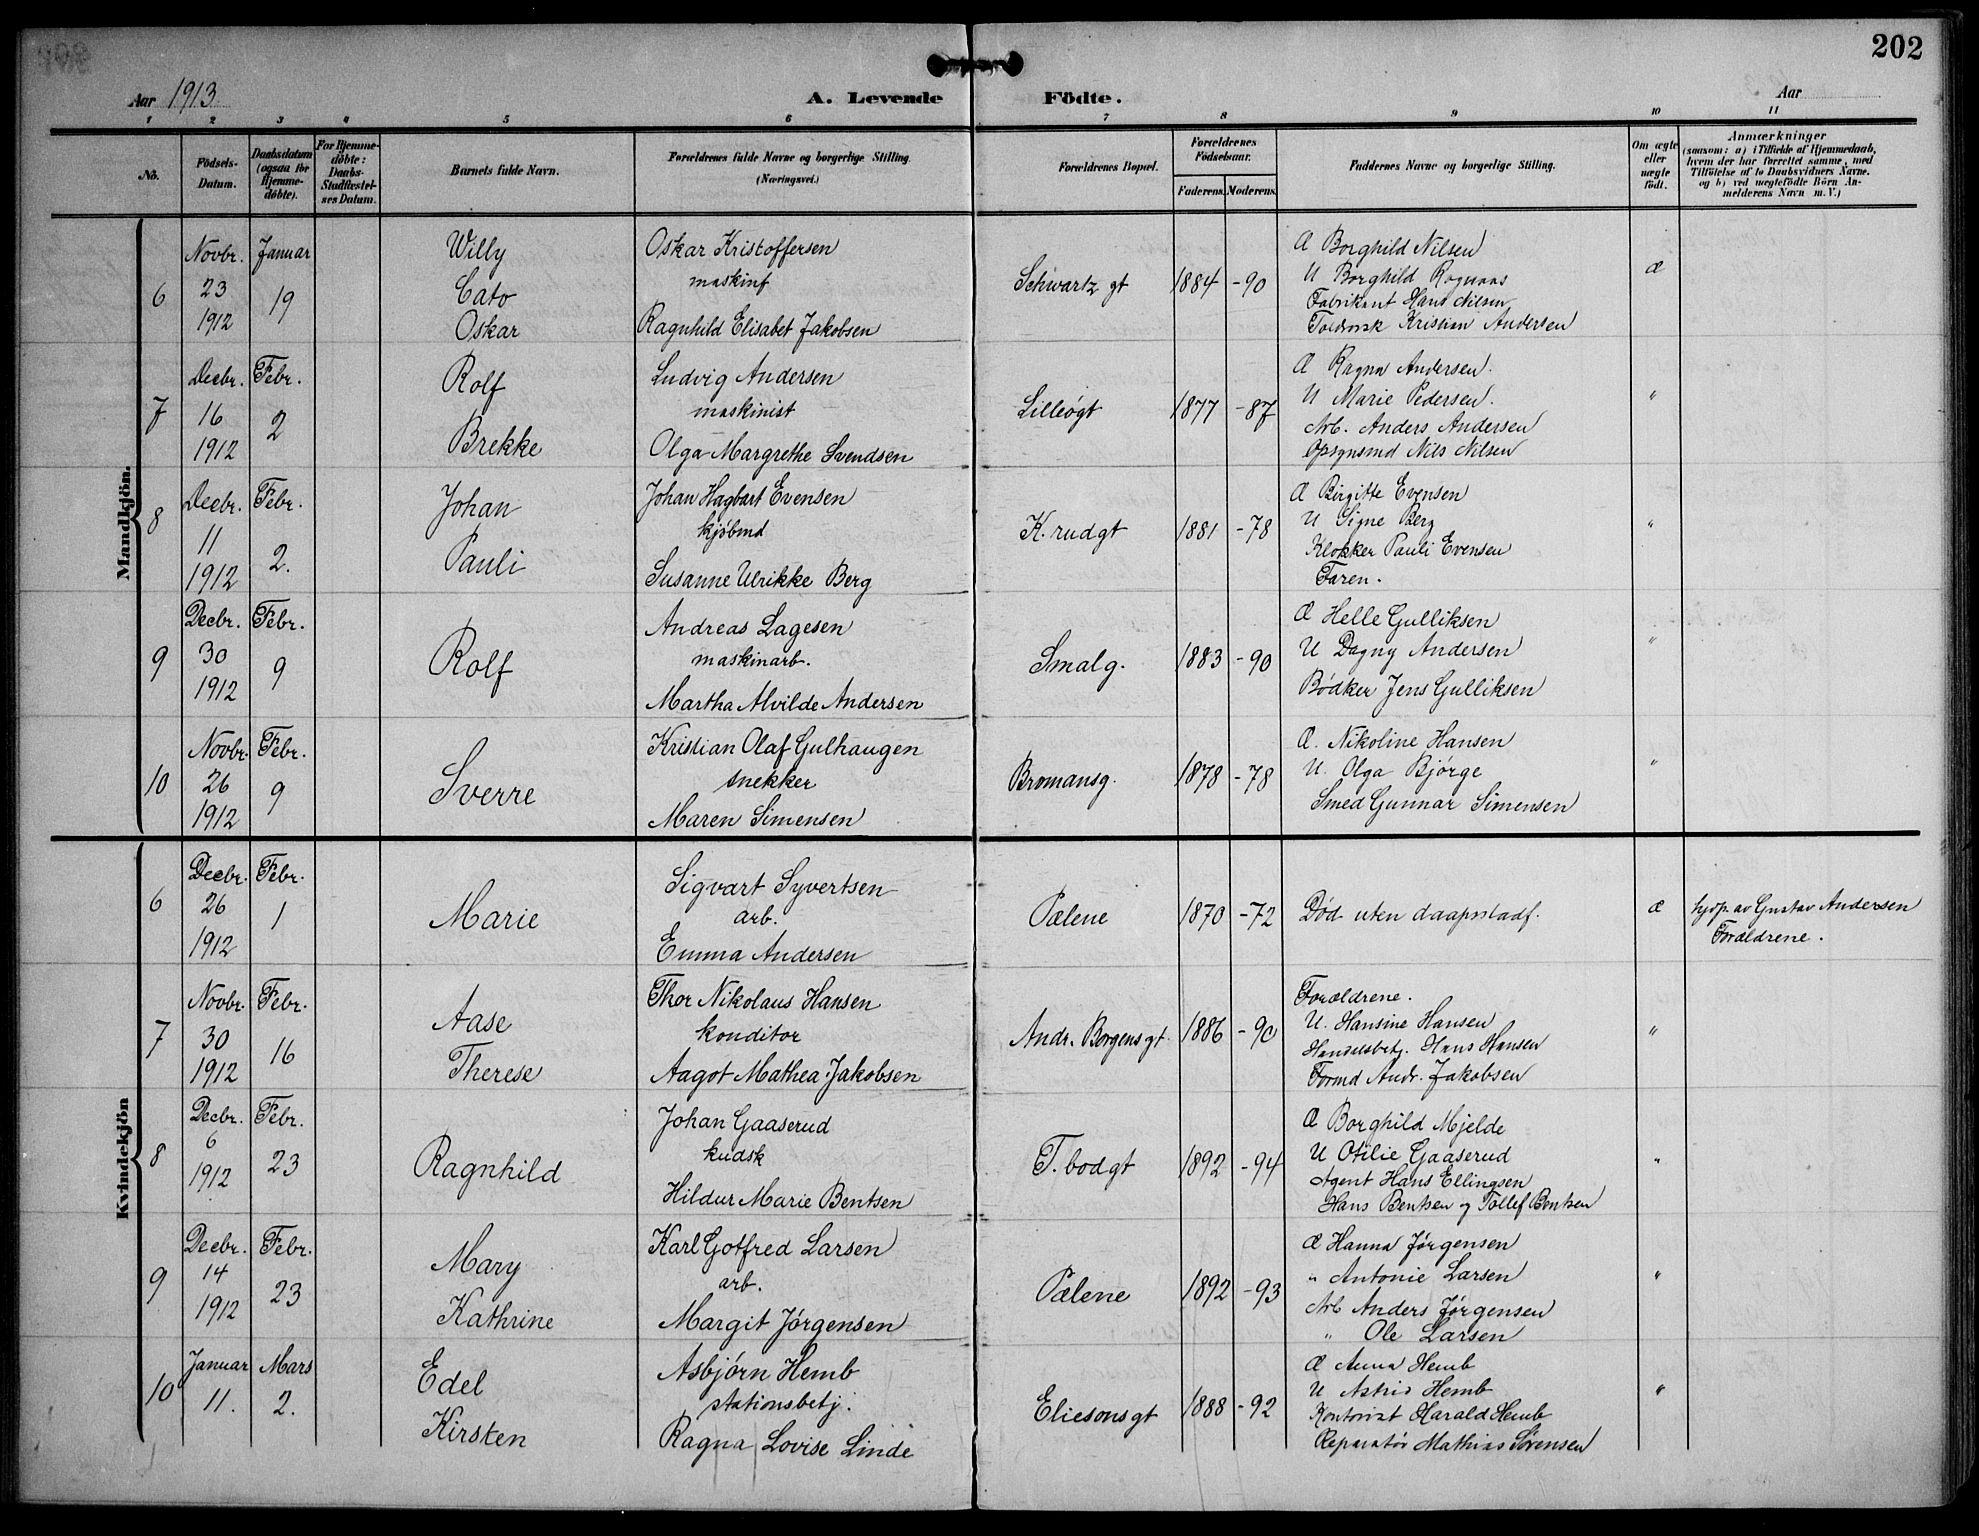 202
Aar 1913.
A. Levende Födte.
Aar
1 2 3 4 5 6 7 8 9 10 11
No.
Födsels-Datum.
Daabsdatum (ogsaa for Hjemmedöbte).
For Hjemmedöbte: Daabs-Stadfæstelses Datum.
Barnets fulde Navn.
Forældrenes fulde Navne og borgerlige Stilling. (Næringsvei.)
Forældrenes Bopæl.
Forældrenes Födselsaar.
Faderens. Moderens.
Faddernes Navne og borgerlige Stilling.
Om ægte eller uægte födt.
Anmærkninger
(saasom: a) i Tilfælde af Hjemmedaab, hvem der har forrettet samme, med Tilföielse af to Daabsvidners Navne. og b) ved uægtefödte Börn Anmelderens Navn m. V.)
Mandkjön.
6 Novbr. 23 1912 Januar 19
Willy Cato Oskar
Oskar Kristoffersen
maskinf
Ragnhild Elisabet Jakobsen
Schwartz gt 1884 -90
Æ Borghild Nilsen
U Borghild
Fabrikant Hans Nilsen
Kristian Andersen
Æ
7 Decbr. 16 1912 Febr. 2
Rolf Brekke
Ludvig Andersen
maskinist
Olga Margrethe Svendsen
Lilleøgt 1877 -87
Æ Ragna Andersen.
U Marie Pedersen.
Arb. Anders Andersen
Opsynsmd Nils Nilsen
"
8 Decbr. 11 1912 Febr. 2.
Johan Pauli
Johan Hagbart Evensen
kjøbmd
Susanne Ulrikke Berg
K. rudgt 1881 -78
Æ Birgitte Evensen
U Signe Berg
Klokker Pauli Evensen
Faren.
"
9 Decbr. 30 1912 Febr. 9
Rolf
Andreas Lagesen
maskinarb.
Martha Alvilde Andersen
Smalg. 1883 -90
Æ Helle Gulliksen
U Dagny Andersen
Bødker Jens Gulliksen
"
10 Novbr. 26 1912 Febr. 9
Sverre
Kristian Olaf Gulhaugen
snekker
Maren Simensen
Bromansg. 1878 -78
Æ. Nikoline Hansen
U. Olga Bjørge
Smed Gunnar Simensen
"
Kvindekjön
6 Decbr. 26 1912 Febr. 1
Marie
Sigvart Syvertsen
arb.
Emma Andersen
Pælene 1870 -72
Død uten daapsstadf.
Æ
hjdp. av Gustav Andersen
Forældrene.
7 Novbr. 30 1912 Febr. 16
Aase Therese
Thor Nikolaus Hansen
konditor
Aagot Mathea Jakobsen
Andr. Borgens gt. 1886 -90
Forældrene.
U. Hansine Hansen
Handelsbetj. Hans Hansen
Formd Andr. Jakobsen
"
8 Decbr. 6 1912 Febr. 23
Ragnhild
Johan Gaaserud
kudsk
Hildur Marie Bentsen
T. bodgt 1892 -94
Æ Borghild Mjelde
U Otilie Gaaserud
Agent Hans Ellingsen
Hans Bentsen og Tollef Bentsen
"
9 Decbr. 14 1912 Febr. 23
Mary Kathrine
Karl Gotfred Larsen
arb.
Margit Jørgensen
Pælene 1892 -93
Æ Hanna Jørgensen
" Antonie Larsen
Arb Anders Jørgensen
" Ole Larsen
"
10 Januar 11. Mars 2.
Edel Kirsten
Asbjørn Hemb
stationsbetj.
Ragna Lovise Linde
Eliesonsgt 1888 -92
Æ Anna Hemb
U Astrid Hemb
Kontorist Harald Hemb
Reparatør Mathias Sørensen
"